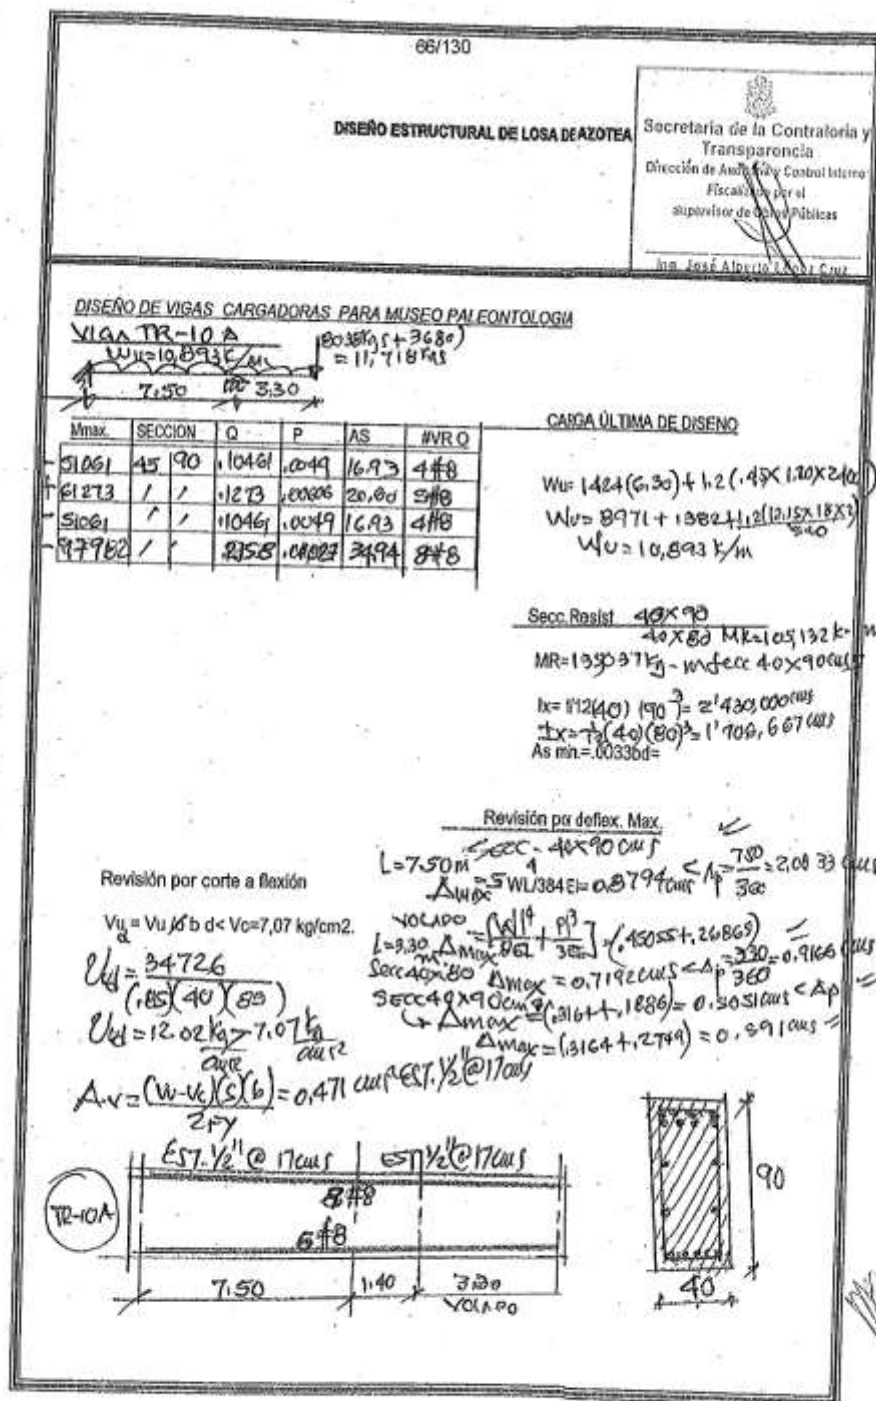 66/130
DISEÑO ESTRUCTURAL DE LOSA DE AZOTEA
Secretaría de la Contraloría y
Transparencia
Dirección de Auditoría y Control Interno
Fiscalizado por el
supervisor de Obras Públicas
Ing. José Alberto López Cruz
DISEÑO DE VIGAS CARGADORAS PARA MUSEO PALEONTOLOGIA
VIGA TR-10 A
(8038Kgs + 3680)
= 11,718 Kgs
Wu=10,893 K/m
7.50 3.30
Mmax. SECCION Q P AS #VR Q
- 51061 45 90 .10461 .0049 16.93 4#8
+ 61273 / / .1273 .00606 20.80 5#8
- 51061 / / .10461 .0049 16.93 4#8
- 97982 / / 34.94 8#8
CARGA ÚLTIMA DE DISEÑO
Wu= 1424(6.30)+1.2(.45X1.20X2400)
Wu= 8971 +
Wu=10,893 k/m
Secc. Resist 40X90
40X80 MR=105,132 k-m
MR=135037 Kg-m secc 40X90cms
Ix= 1/12(40) (90)³= 2'430,000cms
Ix=1/12(40)(80)³=1'706,667cms
As min.=.0033bd=
Revisión por deflex. Max.
SECC - 40X90 cms
L=7.50m
Δmax=5WL⁴/384EI=0.8794cms < Δp=750/360=2.0833 cms
VOLADO
L=3.30m Δmax=[Wl⁴/8EI + Pl³/3EI]=(.45055+.26869)
Secc 40x80 Δmax = 0.7192cms < Δp=330/360=0.9166cms
SECC 40X90cms
Δmax=(.3164+.1886)= 0.5051cms < Δp
Δmax=(.3164+.2749) = 0.591cms
Revisión por corte a flexión
Vu = Vu /ø b d< Vc=7,07 kg/cm2.
Uud=34726/(.85)(40)(85)
Uud=12.02kg/cm2 > 7.07kg/cm2
Av=(Vu-Vc)(S)(b)/2FY=0.471 cms² EST. 1/2"@17cms
EST. 1/2" @ 17cms EST 1/2"@17cms
TR-10A
8#8
5#8
7.50 1.40 3.30
VOLADO
90
40